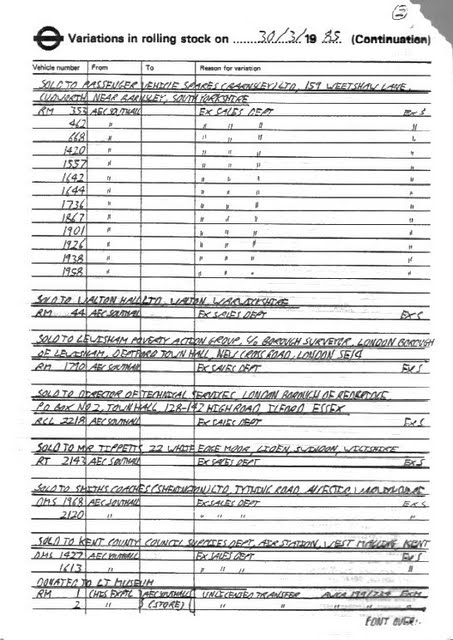 2
Variations in rolling stock on 30/3/19 85 (Continuation)
Vehicle number From To Reason for variation
SOLD TO PASSENGER VEHICLE SPARES (BARNSLEY) LTD, 159 WEETSHAW LANE,
CUDWORTH NEAR BARNSLEY, SOUTH YORKSHIRE
RM 353 AEC SOUTHALL EX SALES DEPT EX S
462 " " " " "
668 " " " " "
1420 " " " " "
1557 " " " " "
1642 " " " " "
1644 " " " " "
1736 " " " " "
1867 " " " " "
1901 " " " " "
1926 " " " " "
1938 " " " " "
1958 " " " " "
SOLD TO WALTON HALL LTD, WALTON, WARWICKSHIRE
RM 44 AEC SOUTHALL EX SALES DEPT EX S
SOLD TO LEWISHAM POVERTY ACTION GROUP, C/O BOROUGH SURVEYOR, LONDON BOROUGH
OF LEWISHAM, DEPTFORD TOWN HALL, NEW CROSS ROAD, LONDON SE14
RM 1710 AEC SOUTHALL EX SALES DEPT EX S
SOLD TO DIRECTOR OF TECHNICAL SERVICES, LONDON BOROUGH OF REDBRIDGE
P.O. BOX NO 2, TOWN HALL, 128-142 HIGH ROAD, ILFORD ESSEX
RCL 2218 AEC SOUTHALL EX SALES DEPT EX S
SOLD TO MR TIPPETTS, 22 WHITE EDGE MOOR, LIDEN, SWINDON, WILTSHIRE
RT 2143 AEC SOUTHALL EX SALES DEPT EX S
SOLD TO SMITHS COACHES (SHENINGTON) LTD, TYTHING ROAD,
DMS 1968 AEC SOUTHALL EX SALES DEPT EX S
2120 " " " "
SOLD TO KENT COUNTY COUNCIL SUPPLIES DEPT, AIR STATION, WEST MALLING KENT
DMS 1427 AEC SOUTHALL EX SALES DEPT EX S
1613 " " " " "
DONATED TO LT MUSEUM
RM 1 CHIS EXPTL AEC SOUTHALL UNLICENSED TRANSFER
2 " (STORE) " "
CONT OVER:-